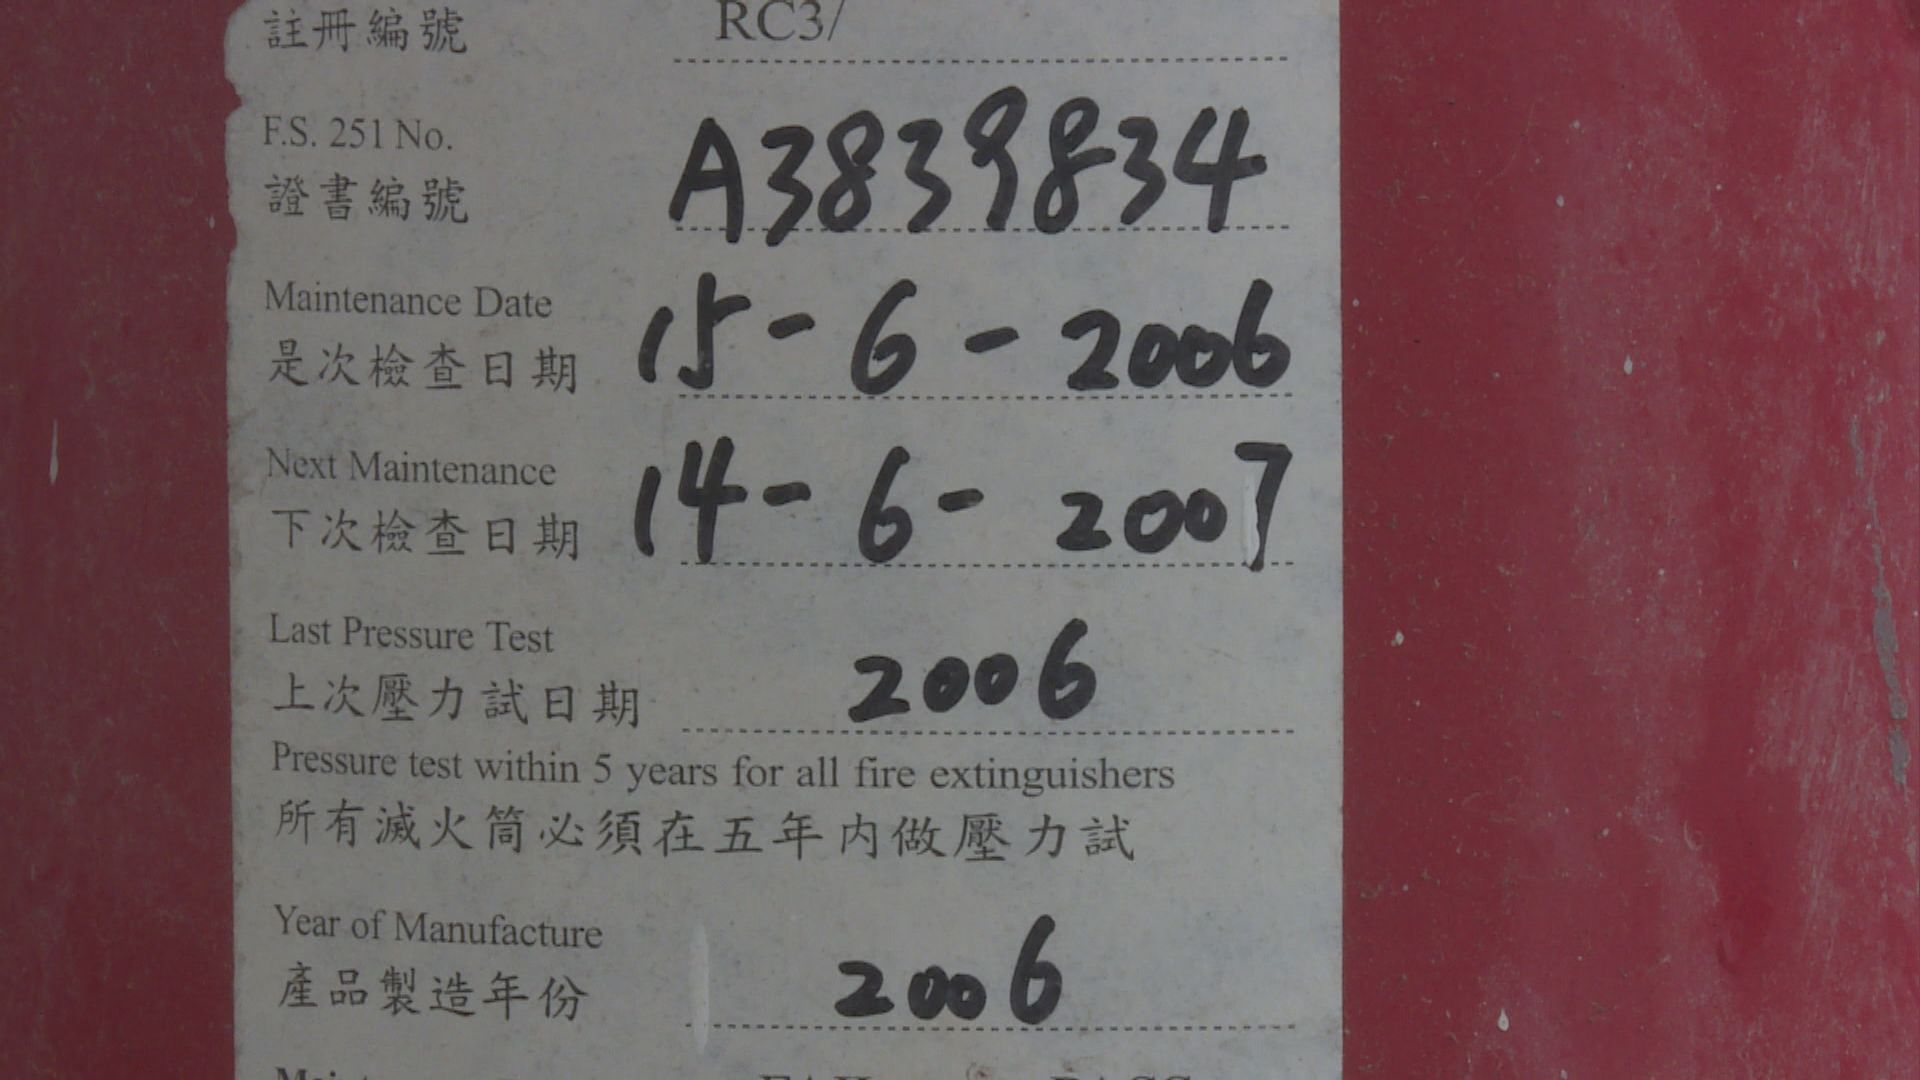 註冊編號 RC3/
F.S. 251 No.
證書編號 A3839834
Maintenance Date
是次檢查日期 15-6-2006
Next Maintenance
下次檢查日期 14-6-2007
Last Pressure Test
上次壓力試日期 2006
Pressure test within 5 years for all fire extinguishers
所有滅火筒必須在五年內做壓力試
Year of Manufacture
產品製造年份 2006